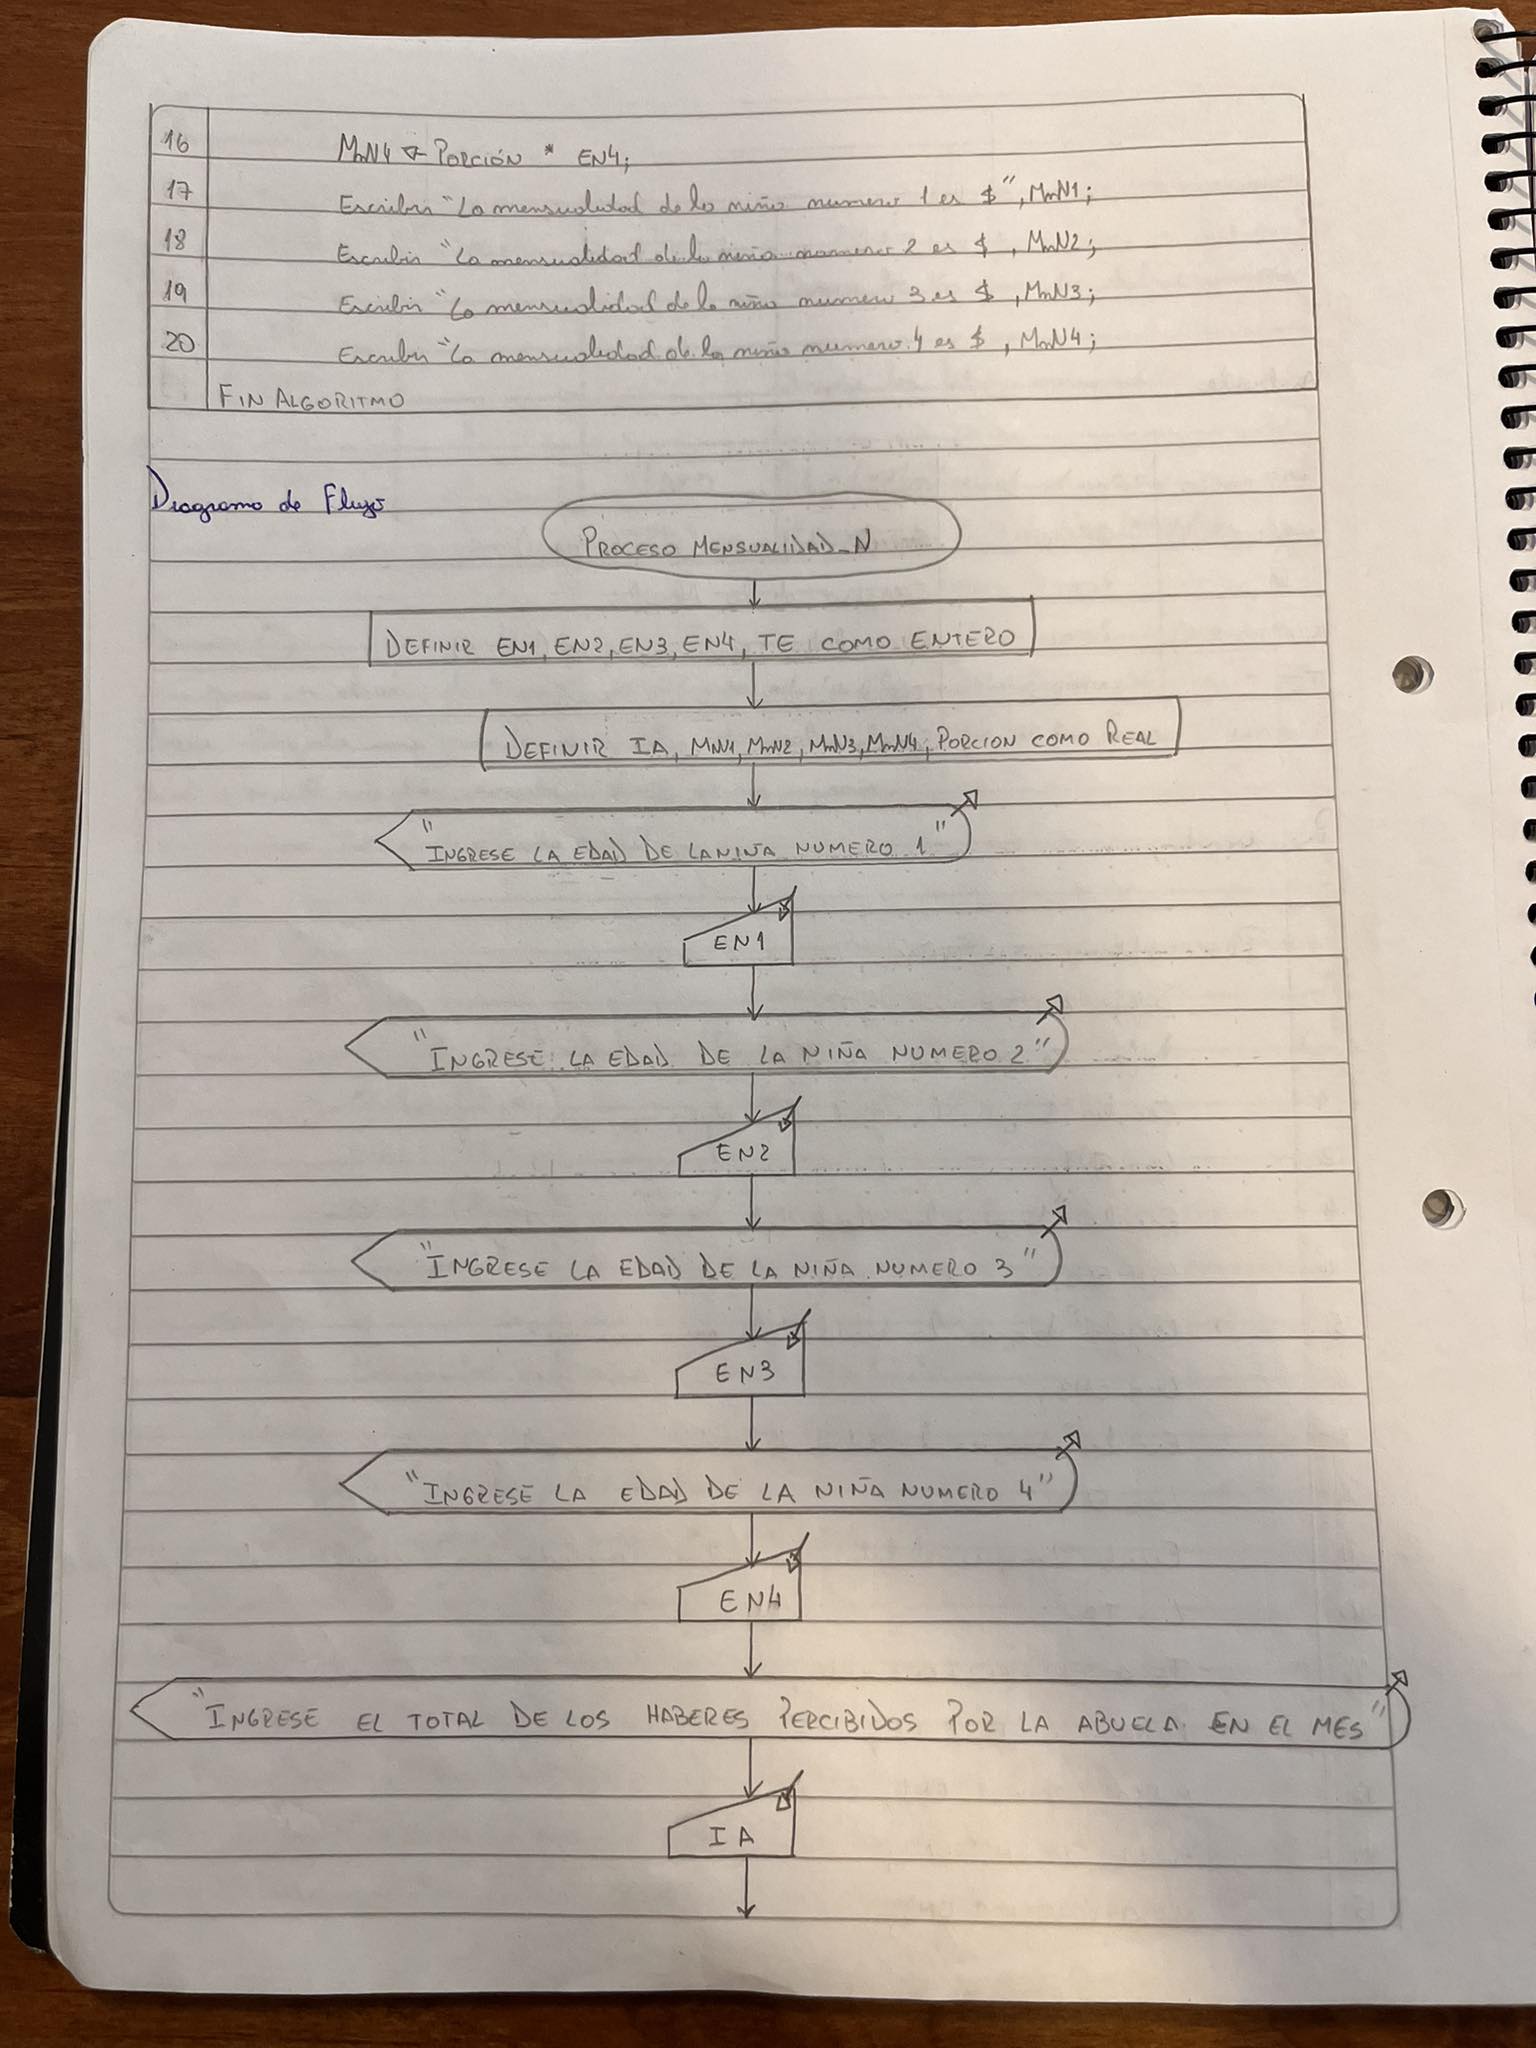 16 MnN4 ← PORCIÓN * EN4;
17 Escribir "La mensualidad de la niña numero 1 es $", MnN1;
18 Escribir "La mensualidad de la niña numero 2 es $, MnN2;
19 Escribir "La mensualidad de la niña numero 3 es $, MnN3;
20 Escribir "La mensualidad de la niña numero 4 es $, MnN4;
FIN ALGORITMO
Diagrama de Flujo
PROCESO MENSUALIDAD_N
DEFINIR EN1, EN2, EN3, EN4, TE COMO ENTERO
DEFINIR IA, MnN1, MnN2, MnN3, MnN4, PORCION COMO REAL
"INGRESE LA EDAD DE LA NIÑA NUMERO 1"
EN1
"INGRESE LA EDAD DE LA NIÑA NUMERO 2"
EN2
"INGRESE LA EDAD DE LA NIÑA NUMERO 3"
EN3
"INGRESE LA EDAD DE LA NIÑA NUMERO 4"
EN4
"INGRESE EL TOTAL DE LOS HABERES PERCIBIDOS POR LA ABUELA EN EL MES"
IA